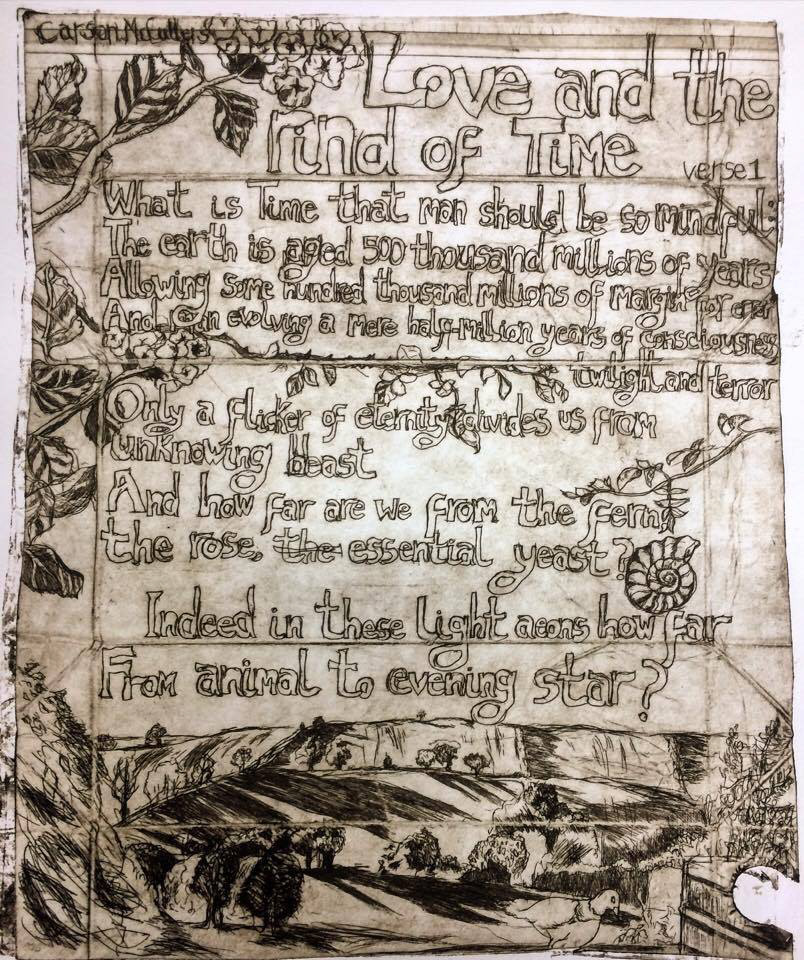 Carson McCullers
Love and the
rind of Time
verse 1
What is Time that man should be so mindful:
The earth is aged 500 thousand millions of years
Allowing some hundred thousand millions of margin for error
And man evolving a mere half-million years of consciousness,
twilight and terror
Only a flicker of eternity divides us from
unknowing beast
And how far are we from the fern,
the rose, the essential yeast?
Indeed in these light aeons how far
From animal to evening star?